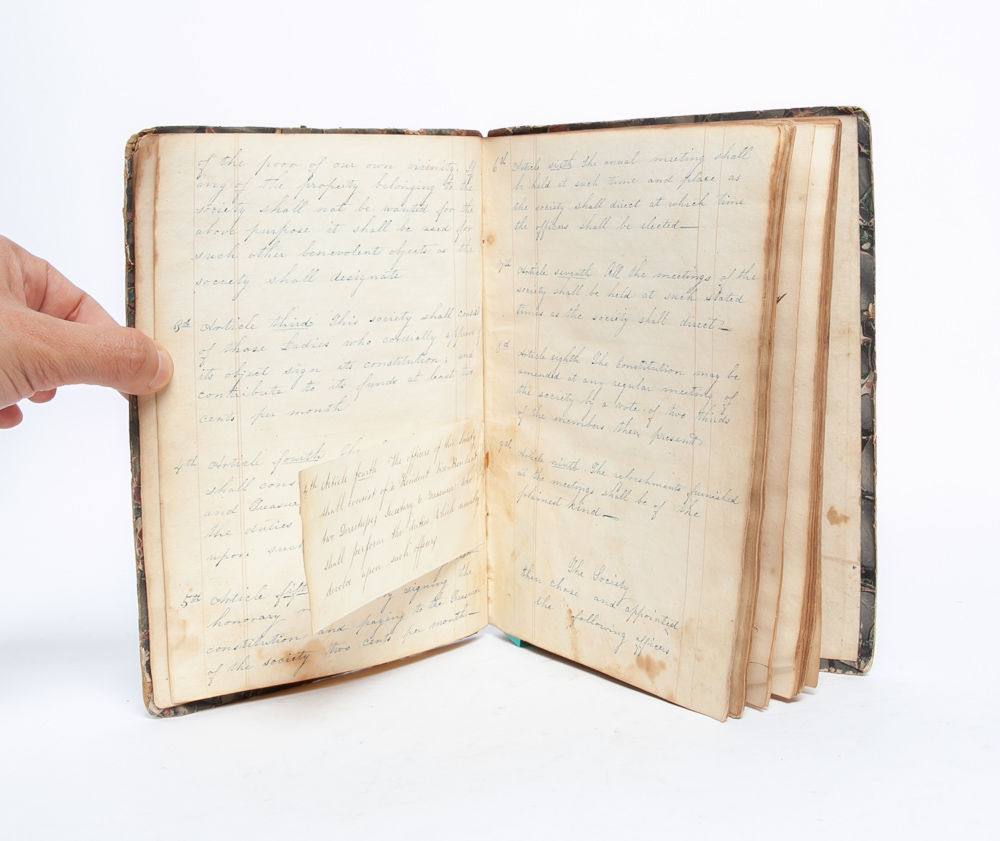 of the poor of our own vicinity. If
any of the property belonging to the
society shall not be wanted for the
above purpose it shall be used for
such other benevolent objects as the
society shall designate
3th Article third This society shall consist
of those Ladies who cordially approve
its object sign its constitution, and
contribute to its funds at least two
cents per month
4th Article fourth The
shall cons
and Treasur
the duties
upon such
4th Article fourth The officers of this Society
shall consist of a President Vice President
two Directresses Secretary & Treasurer who
shall perform the duties which usually
devolve upon such officers
5th Article fift by signing the
honorary
constitution and paying to the Treasurer
of the society two cents per month
6th Article sixth The anual meeting shall
be held at such time and place as
the society shall direct at which time
the officers shall be elected
7th Article seventh All the meetings of the
society shall be held at such stated
times as the society shall direct
8th Article eighth The Constitution may be
amended at any regular meeting of
the society by a vote of two thirds
of the members then present
9th Article ninth The refreshments furnished
at the meetings shall be of the
plainest kind
The Society
then chose and appointed
the following officers